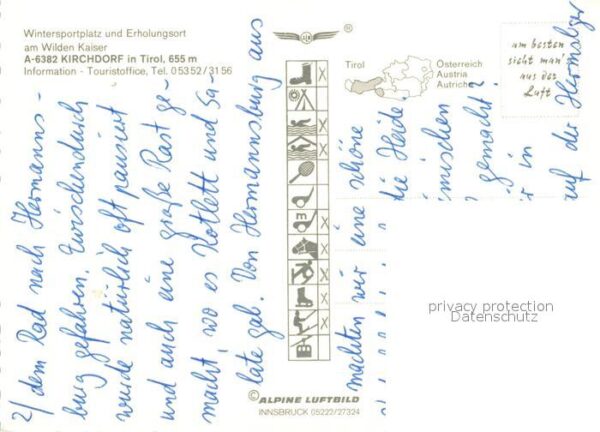 Wintersportplatz und Erholungsort
am Wilden Kaiser
A-6382 KIRCHDORF in Tirol, 655 m
Information - Touristoffice, Tel. 05352/3156
Tirol
Österreich
Austria
Autriche
am besten
sieht man's
aus der
Luft
2/ dem Rad nach Hermanns-
burg gefahren. Zwischendurch
wurde natürlich oft pausiert
und auch eine große Rast ge-
macht, wo es Kotlett und Sa-
late gab. Von Hermannsburg aus
machten wir eine schöne
die Heide,
mischen
gemacht?
in
auf der
E
© ALPINE LUFTBILD
INNSBRUCK 05222/27324
privacy protection
Datenschutz